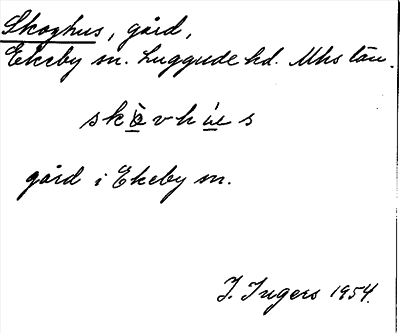 Skoghus, gård,
Ekeby sn. Luggude hd. Mhs län.
skòvhús
gård i Ekeby sn.
I. Ingers 1954.